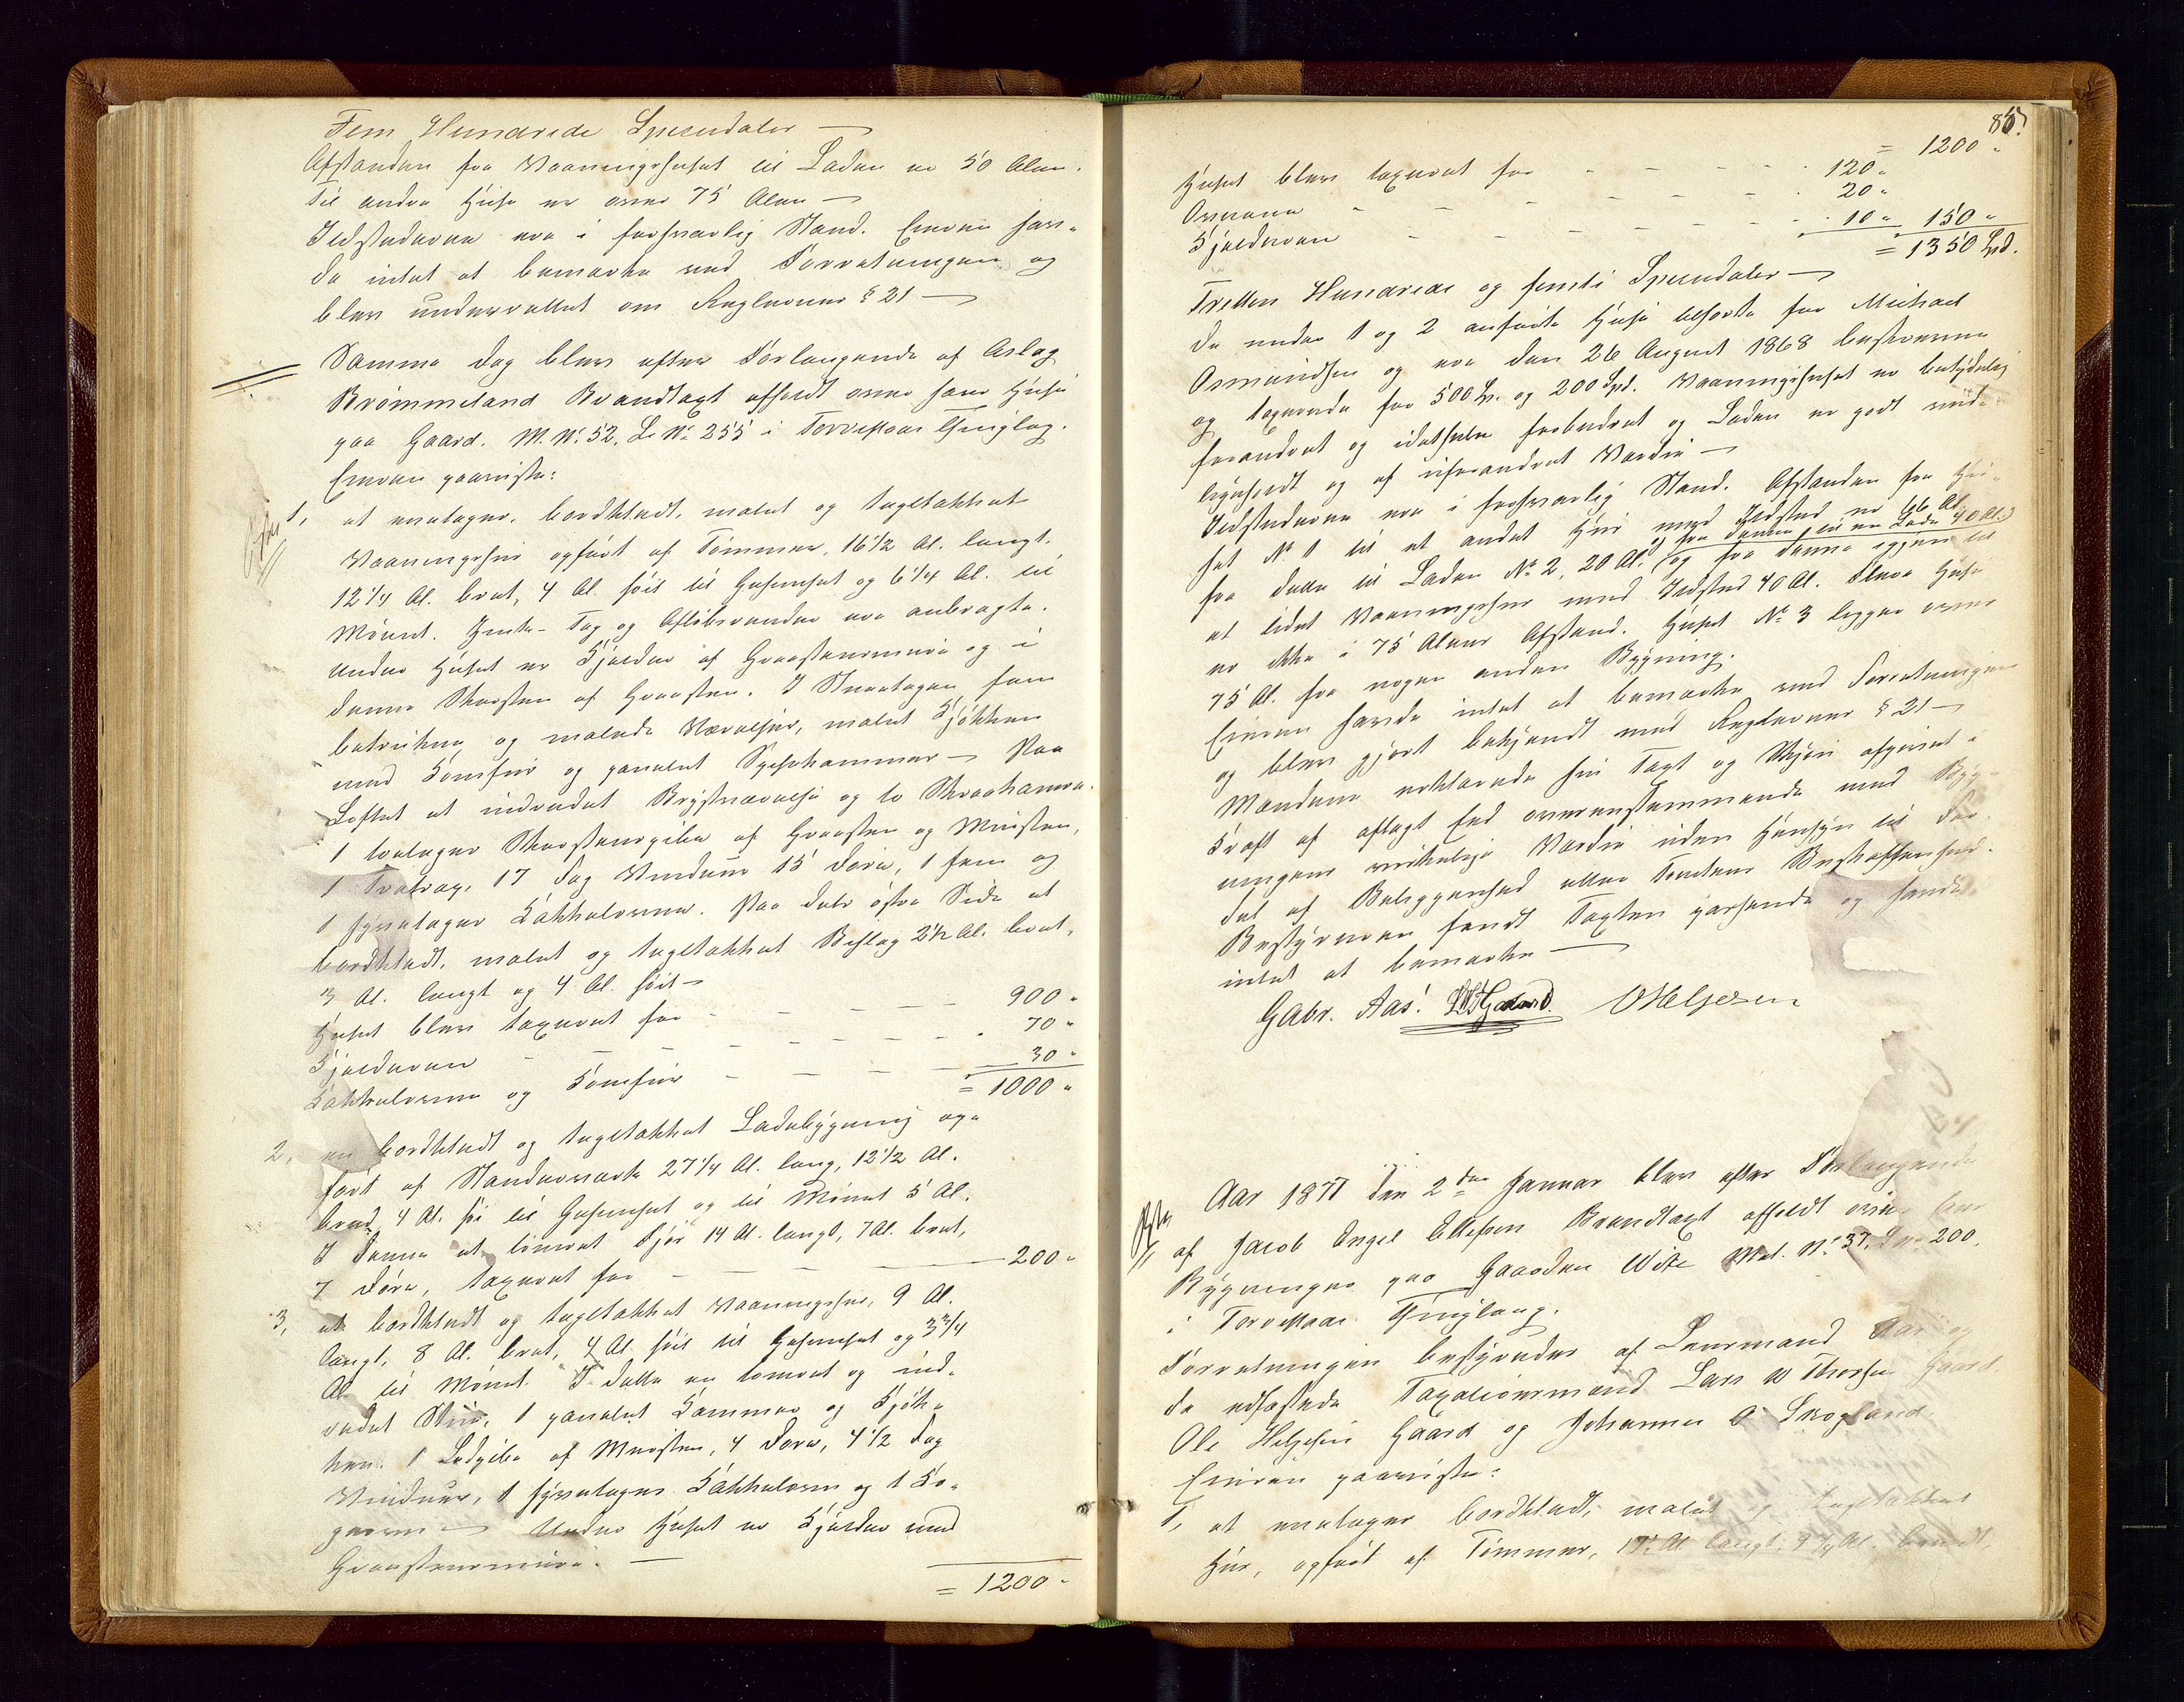 Fem Hundrede Speciedaler —
Afstanden fra Vaaningshuset til Laden er 50 Alen.
Til andre Huse er over 75 Alen —
Ildstederne ere i forsvarlig Stand. Eieren hav-
de intet at bemærke ved Forretningen og
blev underrettet om Reglernes § 21 —
Samme Dag blev efter Forlangende af Aslag
Brommeland Brandtaxt afholdt over hans Huse
paa Gaard. M. No. 52, L. No. 255 i Torvestad Thinglag.
Eieren paaviste:
1, et enetages, bordklædt, malet og tegltækket
Vaaningshus opført af Tømmer, 16 1/2 Al. langt,
12 1/4 Al. bredt, 4 Al. høit til Gesimset og 6 1/4 Al. til
Mønet. Hænk- Tag og Afløbsrender ere anbragte.
Under Huset er Kjelder af Graastensmure og i
denne Skorsten af Graasten. I Stueetagen fem
betrukne og malede Værelser, malet Kjøkken
med Komfur og panelet Spisekammer — Paa
Loftet et indredet Brystværelse og to Skraakamre.
1 toetages Skorstenspibe af Graasten og Mursten,
1 Svaltrap, 17 Fag Vinduer 15 Døre, 1 fem og
1 fyretages Kakkelovne. Paa dets østre Side et
bordklædt, malet og tegltækket Bislag 2 1/2 Al. bredt,
3 Al. langt og 4 Al. høit —
Huset blev taxeret for - - - 900 "
Kjelderen - - - - - - 70 "
Kakkelovne og Komfur - - - 30 "
= 1000 "
2, en bordklædt og tegltækket Ladebygning op-
ført af Standerværk 27 1/4 Al. lang, 12 1/2 Al.
bred, 4 Al. høi til Gesimset og til Mønet 5 Al.
I denne et tømret Fjøs 14 Al. langt, 7 Al. bredt,
7 Døre, taxeret for - - - 200 "
3, et bordklædt og tegltækket Vaaningshus, 9 Al.
langt, 8 Al. bredt, 4 Al. høit til Gesimset og 3 3/4
Al. til Mønet. I dette en tømret og ind-
redet Stue, 1 panelet Kammer og Kjøk-
ken. 1 Ledpibe af Mursten, 4 Døre, 4 1/2 Fag
Vinduer, 1 fyretages Kakkelovn og 1 Ko-
geovn — Under Huset er Kjelder med
Graastensmure. —
= 1200 "
85.
= 1200 "
Huset blev taxeret for - - - 120 "
Ovnene - - - - - - 20 "
Kjelderen - - - - - - 10 " 150 "
= 1350 Spd.
Tretten Hundrede og femti Speciedaler —
De under 1 og 2 anførte Huse tilhørte før Michael
Asmundsen og ere den 26 August 1868 beskrevne
og taxerede for 500 Sp. og 200 Spd. Vaaningshuset er betydelig
forandret og idethele forbedret og Laden er godt ved-
ligeholdt og af uforandret Værdie —
Ildstederne ere i forsvarlig Stand. Afstanden fra Hu-
set No. 1 til et andet Hus med Ildsted er 66 Al.
fra dette til Laden No. 2, 20 Al. (og fra denne til en Lade 40 Al.) og fra denne igjen til
et lidet Vaaningshus med Ildsted 40 Al. Flere Huse
er ikke i 75 Alens Afstand. Huset No. 3 ligger over
75 Al. fra nogen anden Bygning.
Eieren havde intet at bemærke ved Forretningen
og blev gjort bekjendt med Reglernes § 21 —
Mændene erklærede sin Taxt og Skjøn afgivet i
Kraft af aflagt Eed overensstemmende med Byg-
ningens virkelige Værdie uden Hensyn til For-
del af Beliggenhed eller Tomtens Beskaffenhed.
Bestyreren fandt Taxten passende og havde
intet at bemærke —
Gabr. Aas. O Helgesen
Aar 1871 den 2den Januar blev efter Forlangende
af Jacob Engel Ellefsen Brandtaxt afholdt over hans
Bygninger paa Gaarden Wike Mat. No. 37, L. No. 200.
i Torvestad Thinglaug.
Forretningen bestyredes af Lensmand Aas og
de edfæstede Taxationsmænd Lars W Thorsen Gaard
Ole Helgesen Gaard og Johannes O. Skogland
Eieren paaviste:
1, et enetages bordklædt, malet og tegltækket
Hus, opført af Tømmer, 17 Al. langt, 9 3/4 Al. bredt,